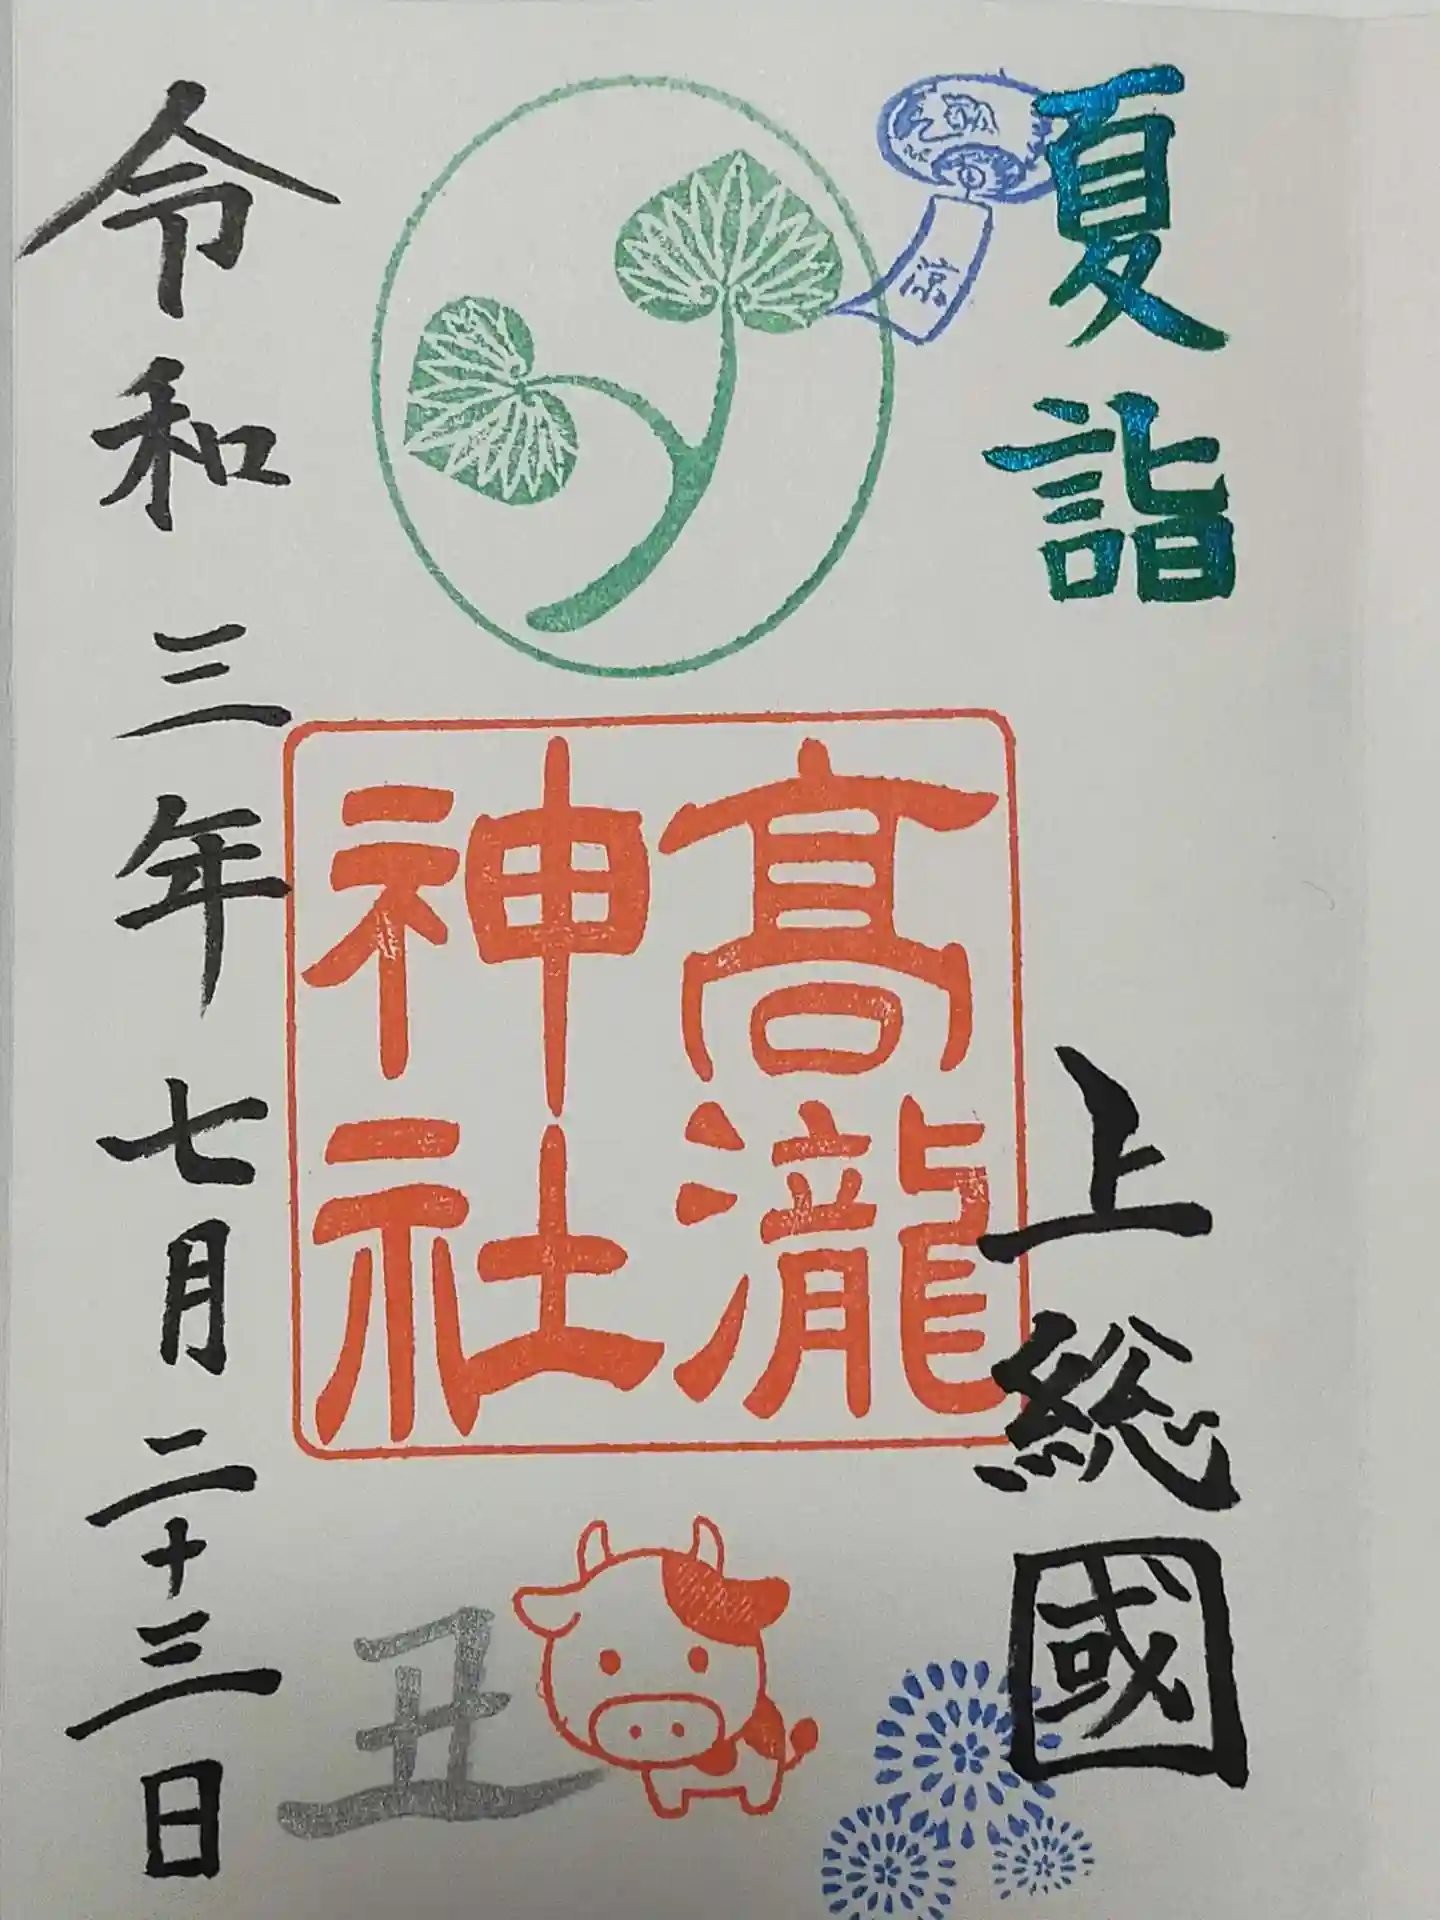 夏詣
涼
上総國
髙瀧
神社
丑
令和三年七月二十三日